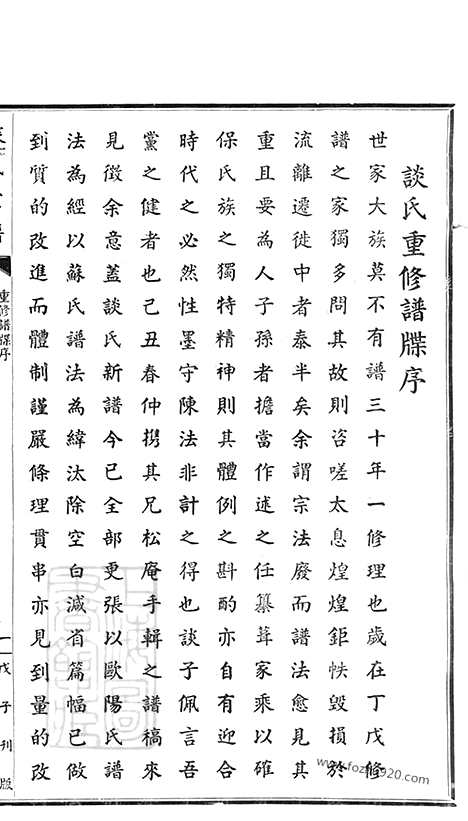 談氏重修譜牒序
世家大族莫不有譜三十年一修理也歲在丁戊修
譜之家獨多問其故則咨嗟太息煌煌鉅帙毀損於
流離遷徙中者泰半矣余謂宗法廢而譜法愈見其
重且要為人子孫者擔當作述之任纂葺家乘以確
保氏族之獨特精神則其體例之斟酌亦自有迎合
時代之必然性墨守陳法非計之得也談子佩言吾
黨之健者也己丑春仲携其兄松庵手輯之譜稿來
見徵余意蓋談氏新譜今已全部更張以歐陽氏譜
法為經以蘇氏譜法為緯汰除空白減省篇幅已做
到質的改進而體制謹嚴條理貫串亦見到量的改
重修譜牒序
一
戊子刊版
www.fozhu920.com